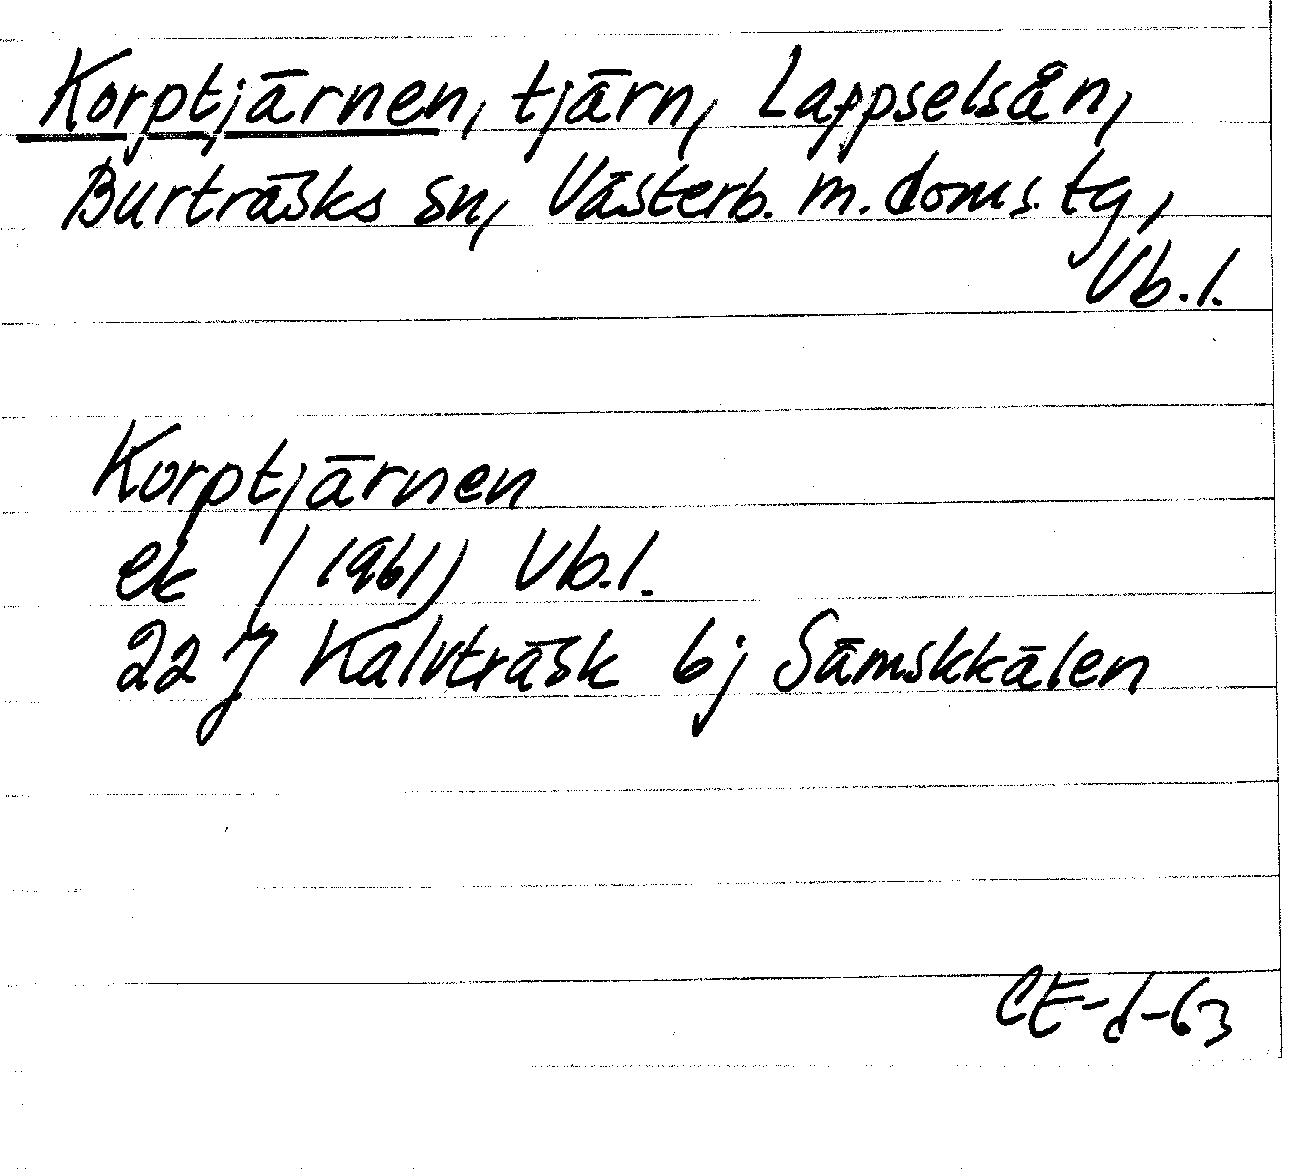 Korptjärnen, tjärn, Lappselsån,
Burträsks sn, Västerb. m. doms. tg,
Vb. l.
Korptjärnen
ek (1961) Vb. l.
22 J Kalvträsk 6j Sämskkälen
CE-d-63